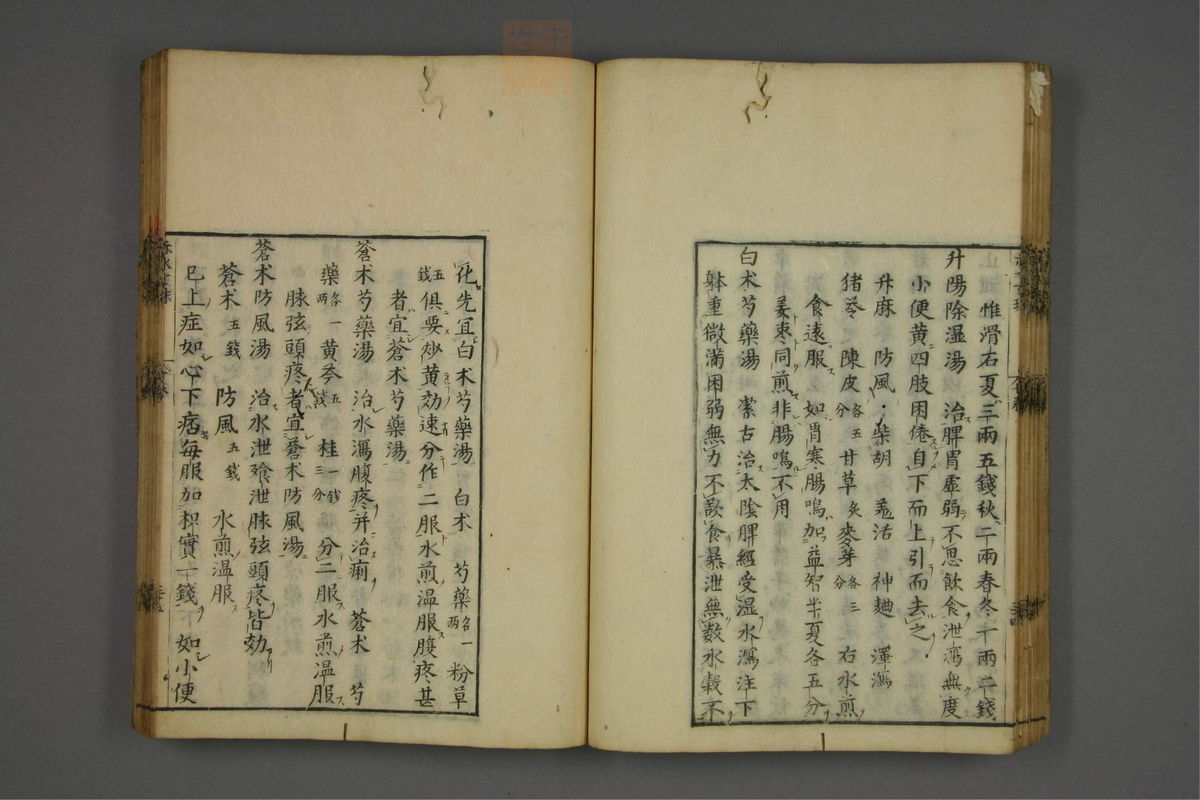 惟滑石夏三兩五錢秋二兩春冬一兩二錢
升陽除湿湯 治脾胃虚弱不思飲食泄瀉無度
小便黄四肢困倦自下而上引而去之
升麻 防風 柴胡 羗活 神麯 澤瀉
猪苓 陳皮各五分 甘草炙 麥芽各三分 右水煎
食遠服 如胃寒腸鳴加益智半夏各五分
姜枣同煎非腸鳴不用
白术芍藥湯 潔古治太陰脾經受湿水瀉注下
躰重微滿困弱無力不欲食暴泄無数水穀不
化先宜白术芍藥湯 白术 芍藥各一兩 粉草
五錢 俱要炒黄効速分作二服水煎温服腹疼甚
者宜蒼术芍藥湯
蒼术芍藥湯 治水瀉腹疼并治痢 蒼术 芍
藥各一兩 黄芩五錢 桂一錢三分 分二服水煎温服
脉弦頭疼者宜蒼术防風湯
蒼术防風湯 治水泄飱泄脉弦頭疼皆効
蒼术五錢 防風五錢 水煎温服
已上症如心下痞每服加枳實一錢 如小便